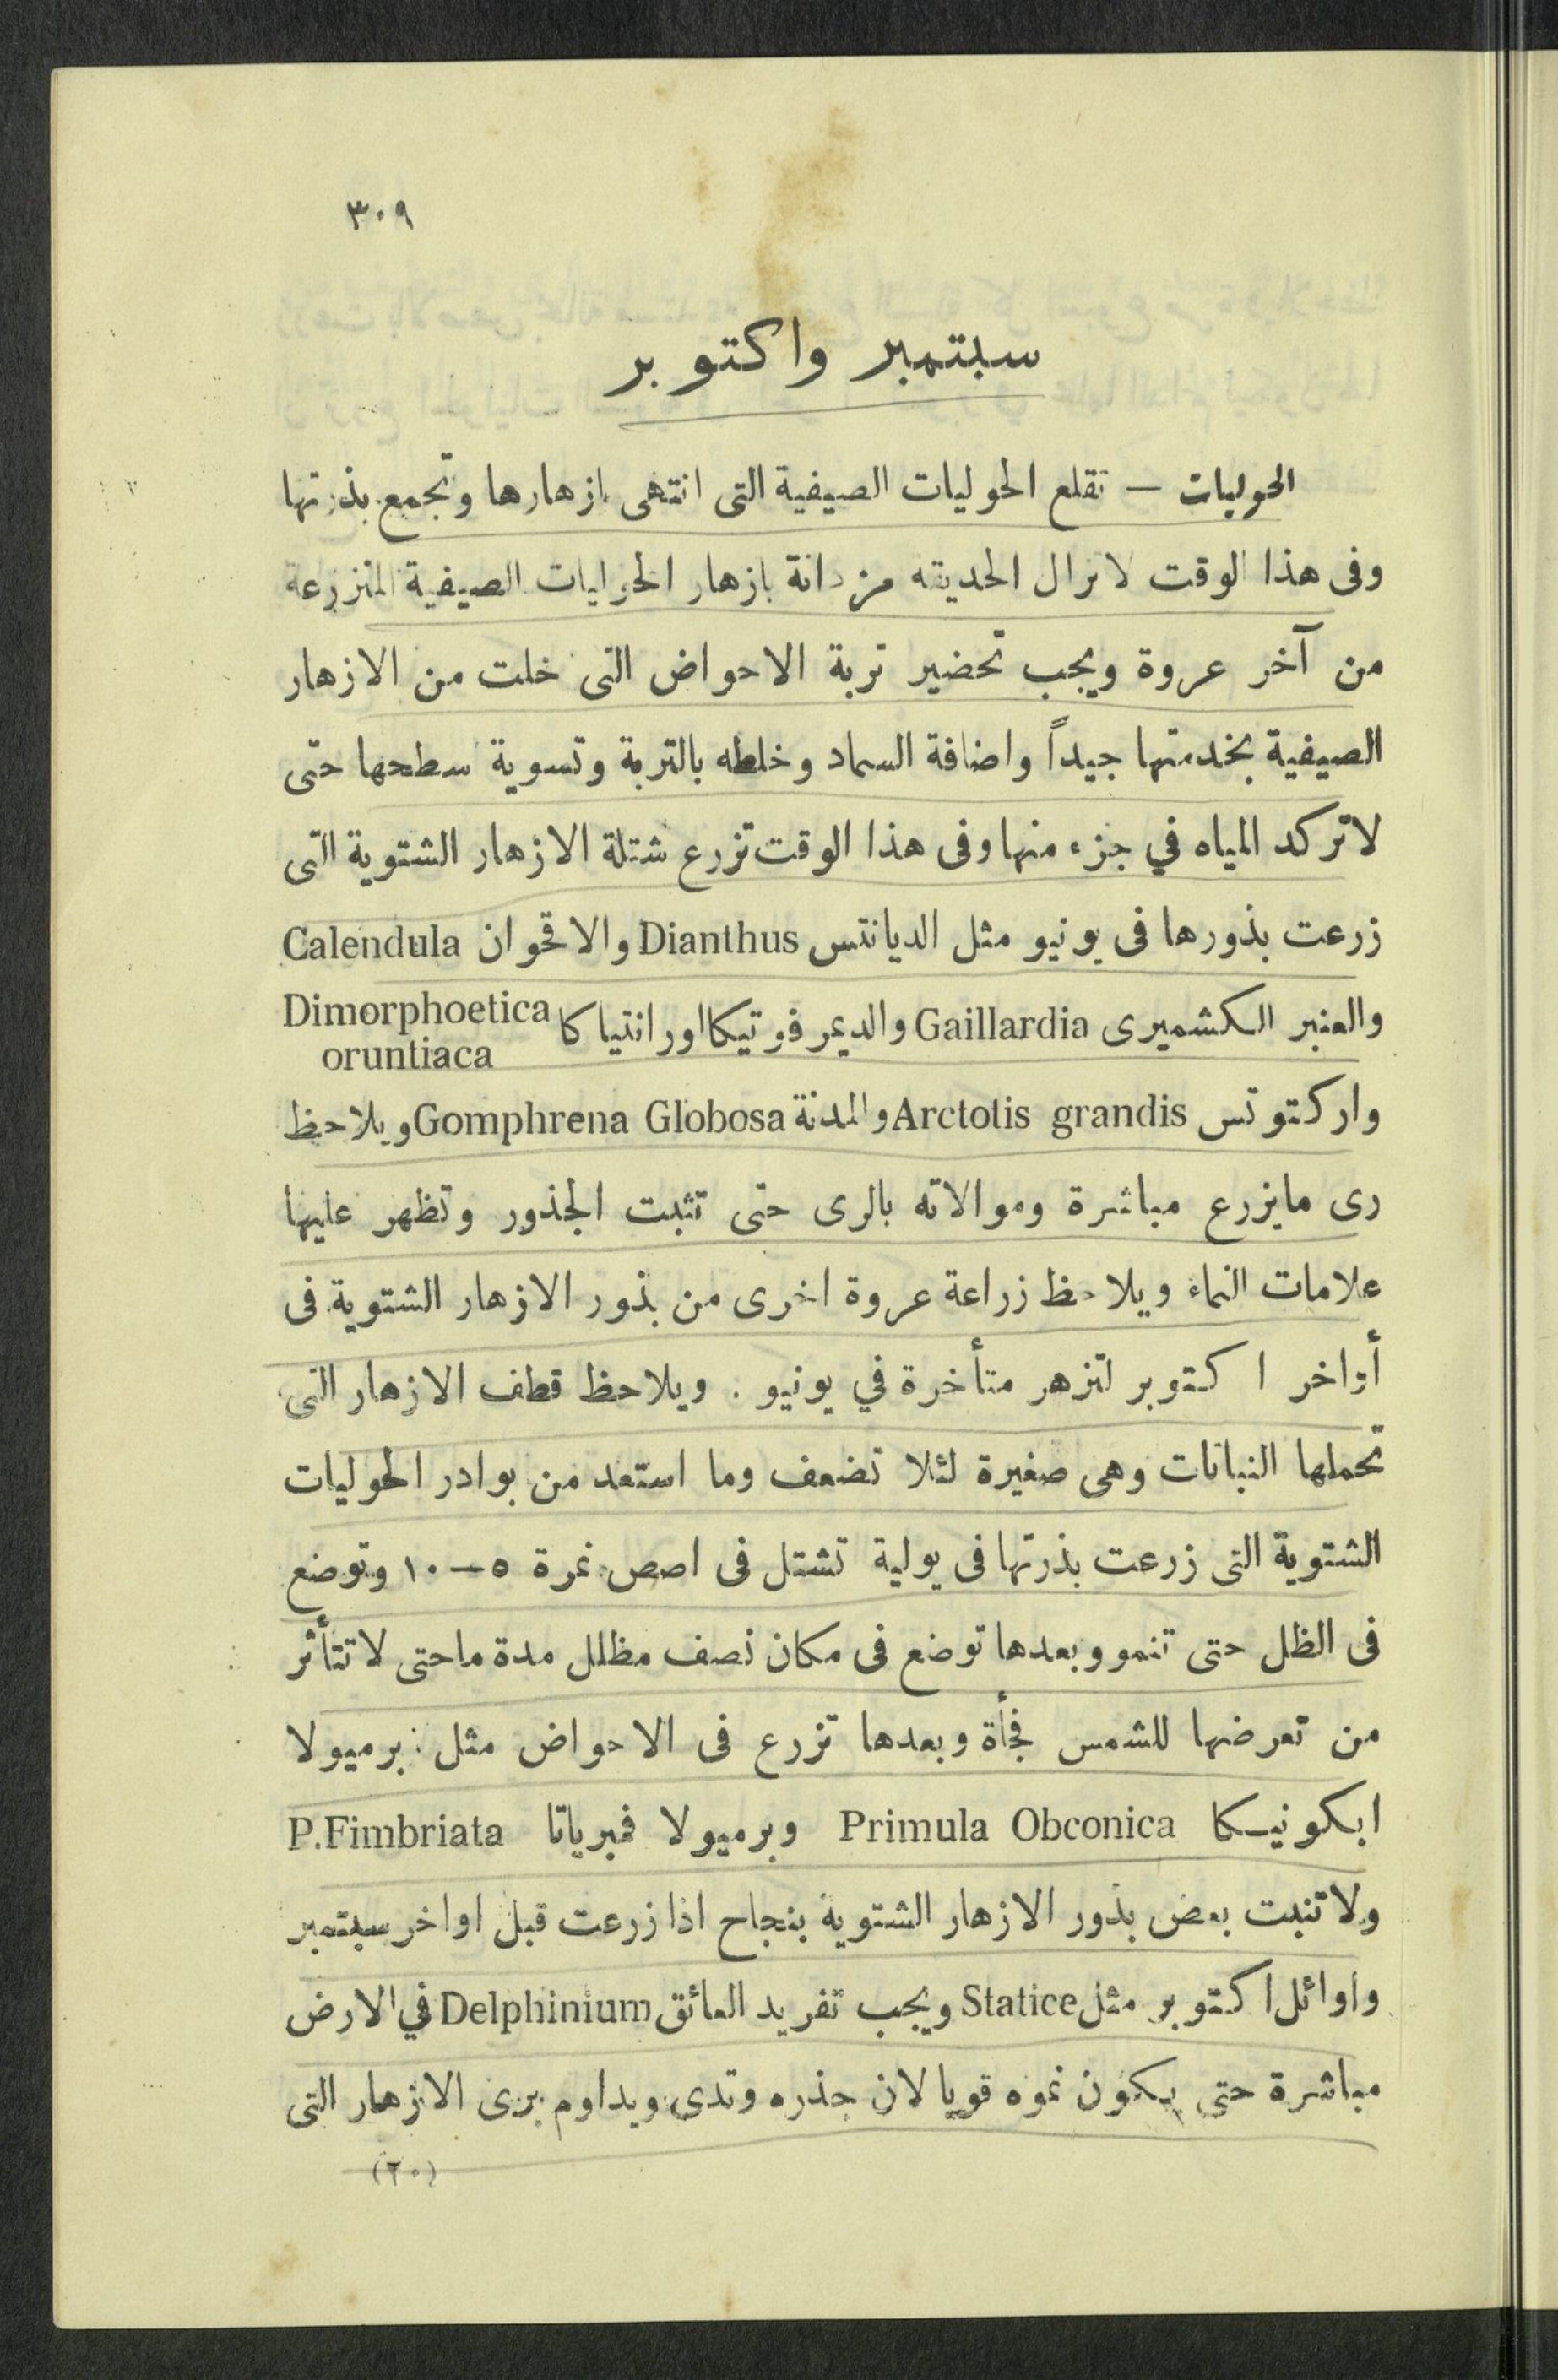 ٣٠٩
سبتمبر واكتوبر
الحوليات — تقلع الحوليات الصيفية التى انتهى ازهارها وتجمع بذرتها
وفى هذا الوقت لاتزال الحديقه مزدانة بازهار الحوليات الصيفية المنزرعة
من آخر عروة ويجب تحضير تربة الاحواض التى خلت من الازهار
الصيفية بخدمتها جيداً واضافة السماد وخلطه بالتربة وتسوية سطحها حتى
لاتركد المياه في جزء منها وفى هذا الوقت تزرع شتلة الازهار الشتوية التى
زرعت بذورها فى يونيو مثل الديانتس Dianthus والاقحوان Calendula
والعنبر الكشميرى Gaillardia والديمرفوتيكا اورانتياكا Dimorphoetica
oruntiaca
واركتوتس Arctotis grandis والمدنة Gomphrena Globosa ويلاحظ
رى مايزرع مباشرة وموالاته بالرى حتى تثبت الجذور وتظهر عليها
علامات النماء ويلاحظ زراعة عروة اخرى من بذور الازهار الشتوية فى
أواخر اكتوبر لتزهر متأخرة في يونيو . ويلاحظ قطف الازهار التى
تحملها النباتات وهى صغيرة لئلا تضعف وما استعد من بوادر الحوليات
الشتوية التى زرعت بذرتها فى يولية تشتل فى اصص نمرة ٥ — ١٠ وتوضع
فى الظل حتى تنمو وبعدها توضع فى مكان نصف مظلل مدة ماحتى لاتتأثر
من تعرضها للشمس فجأة وبعدها تزرع فى الاحواض مثل : برميولا
ابكونيكا Primula Obconica وبرميولا فمبرياتا P.Fimbriata
ولاتنبت بعض بذور الازهار الشتوية بنجاح اذا زرعت قبل اواخر سبتمبر
واوائل اكتوبر مثل Statice ويجب تفريد العائق Delphinium في الارض
مباشرة حتى يكون نموه قويا لان جذره وتدى ويداوم برى الازهار التى
(٢٠)